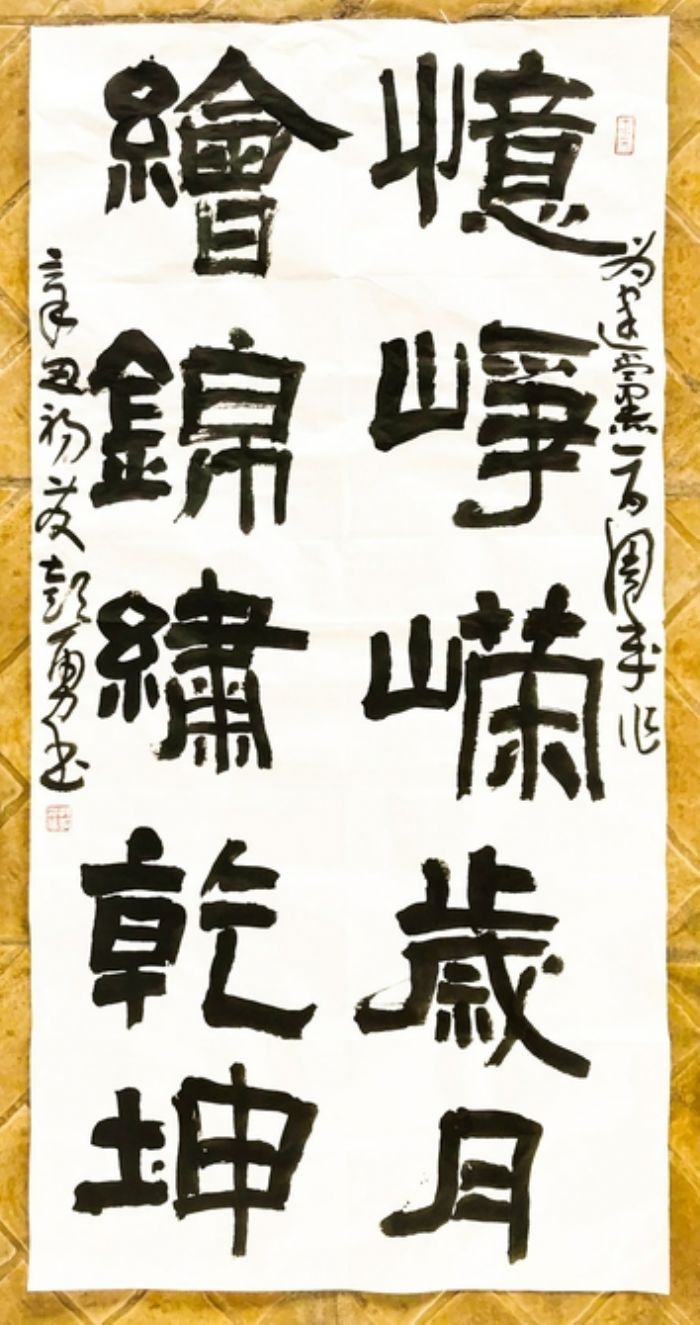 憶崢嶸歲月
繪錦繡乾坤
为建黨百周年作
辛丑初夏彭勇书